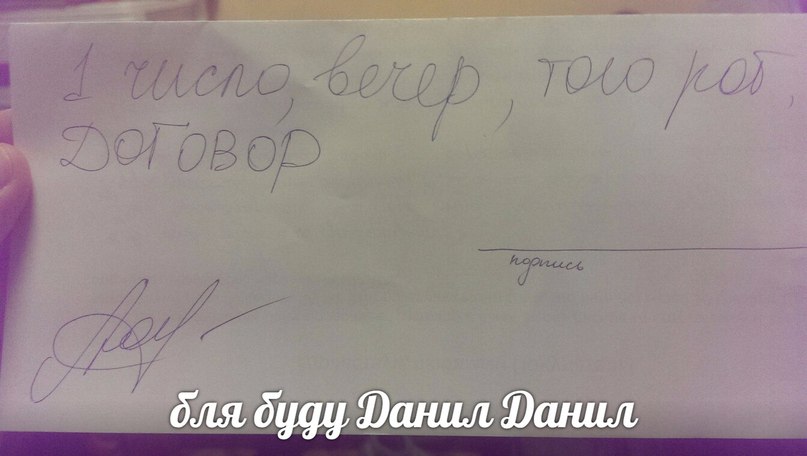 1 число, вечер, того раб,
ДОГОВОР
подпись
бля буду Данил Данил